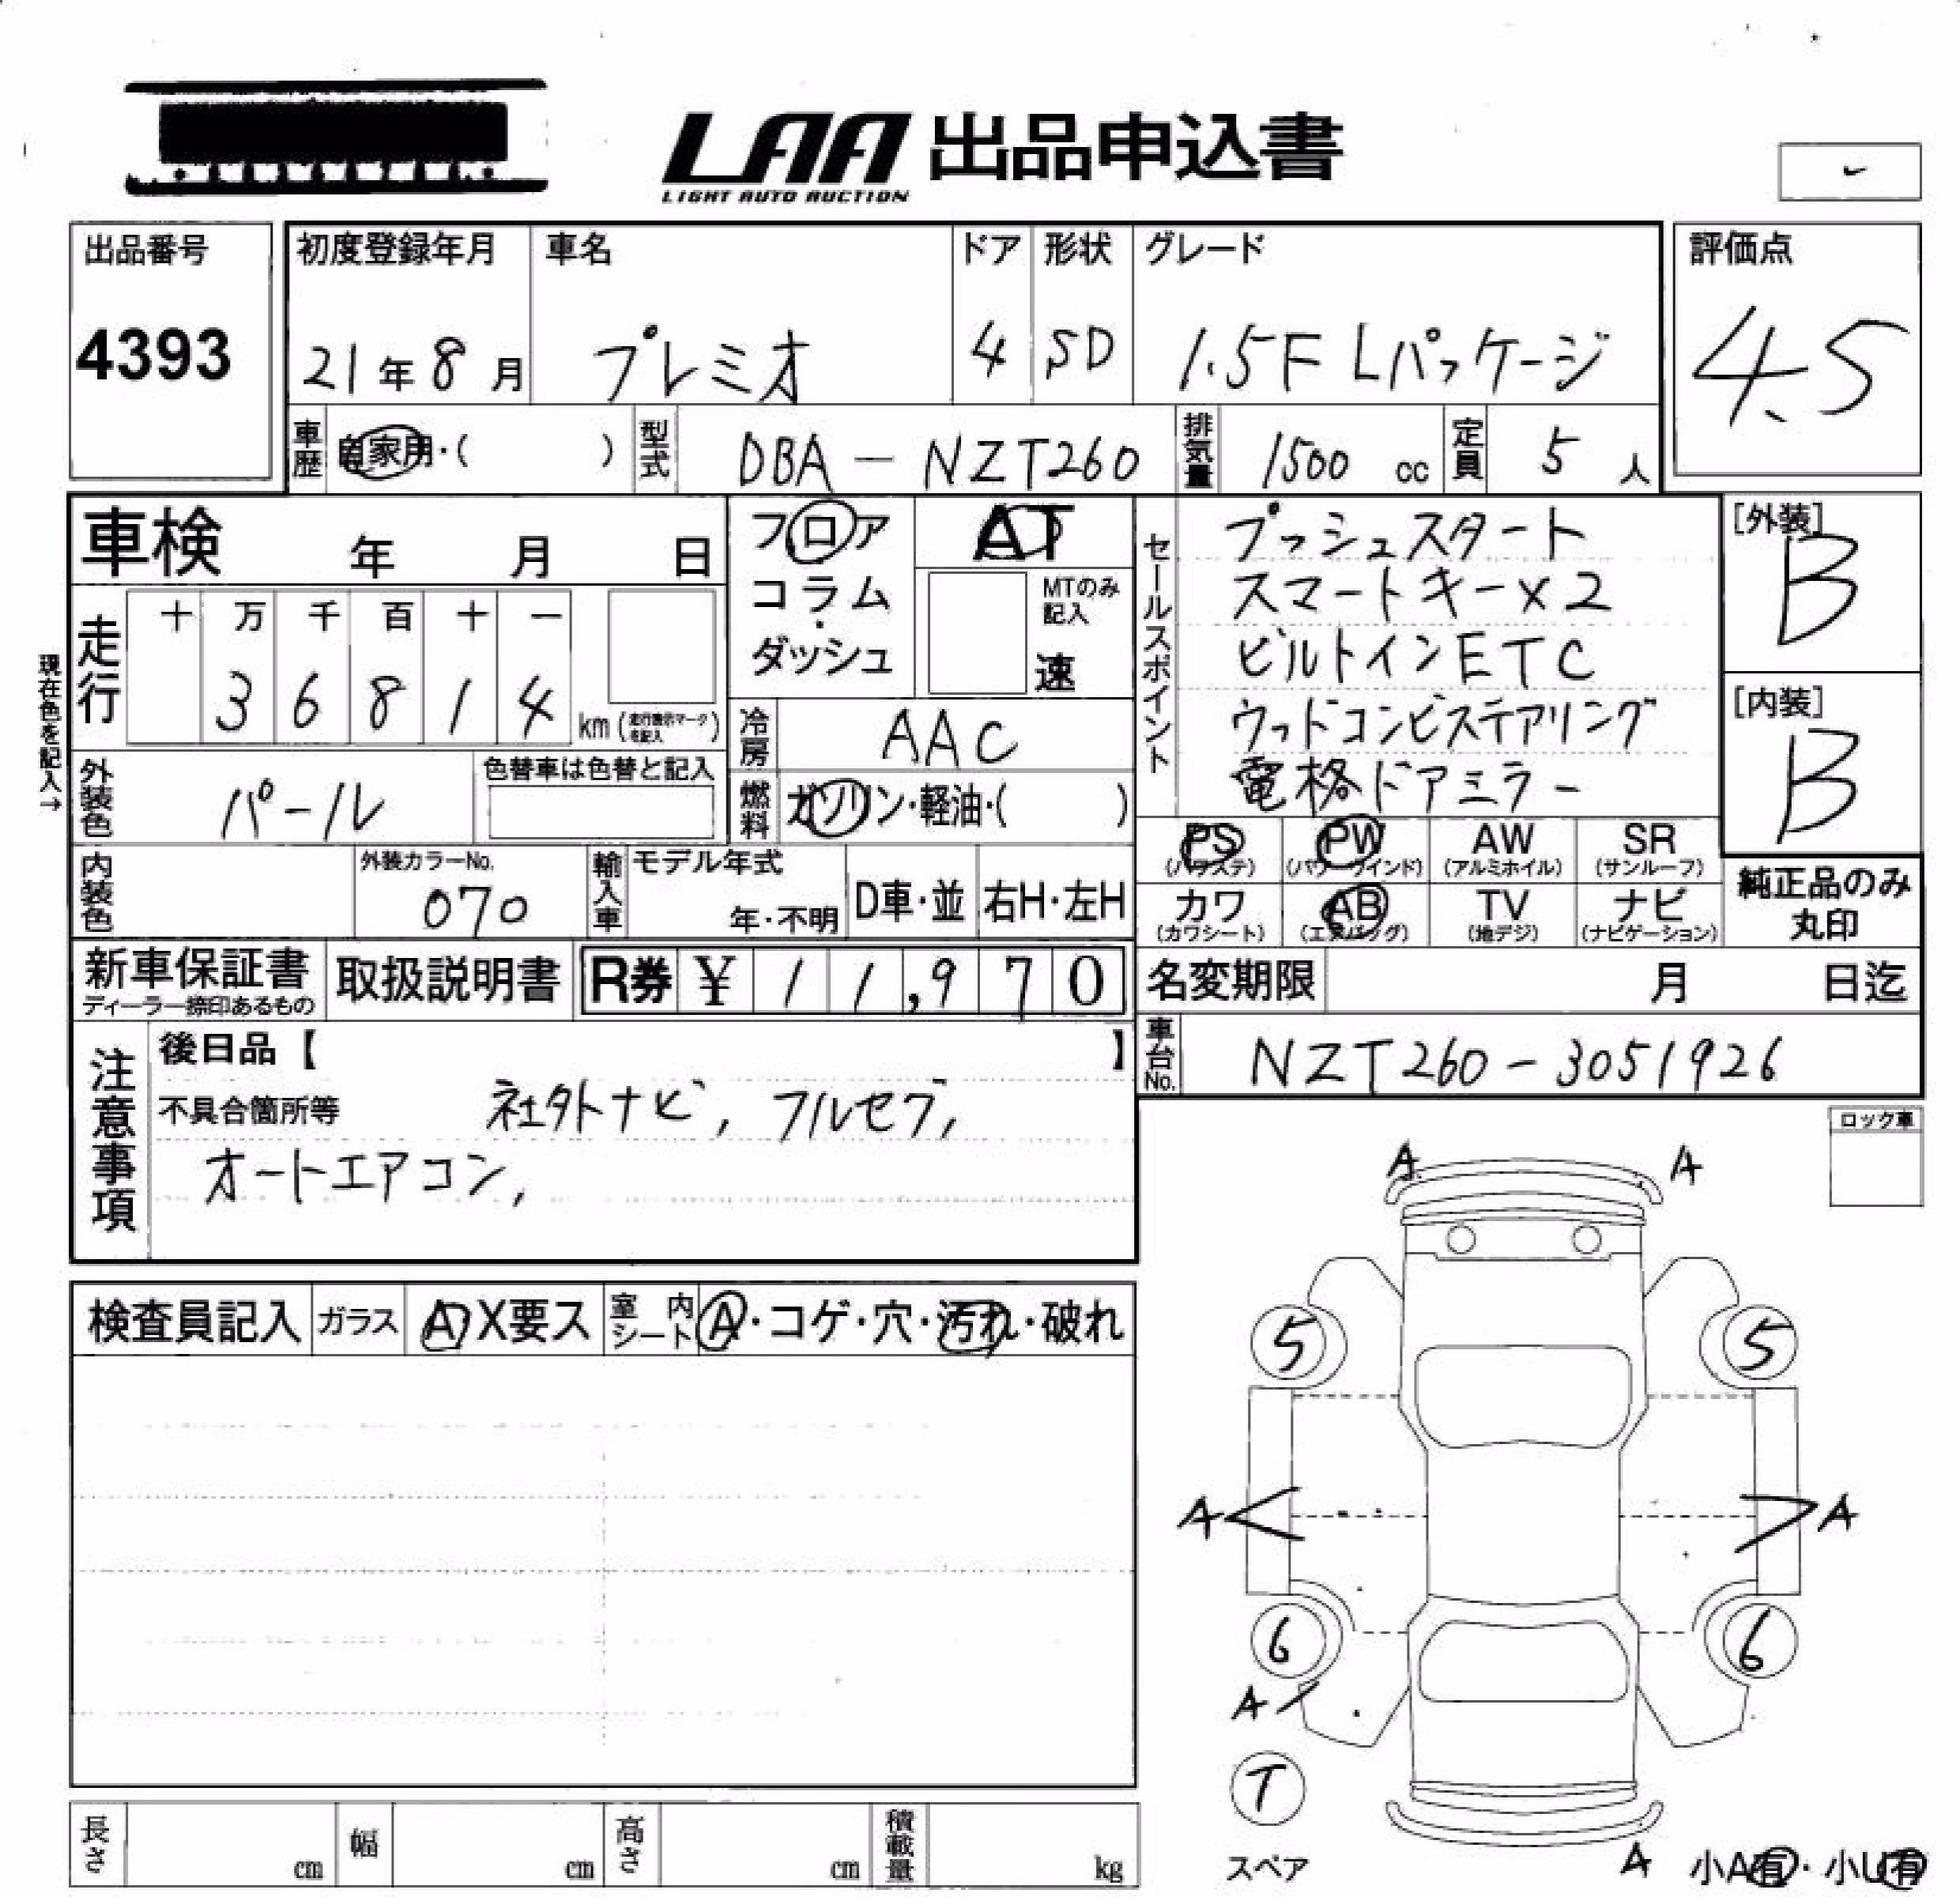 LAA 出品申込書
LIGHT AUTO AUCTION
出品番号
4393
初度登録年月
21年8月
車名
プレミオ
ドア
4
形状
SD
グレード
1.5F Lパッケージ
評価点
4.5
車歴
自家用・( )
型式
DBA-NZT260
排気量
1500 cc
定員
5 人
車検 年 月 日
フロア
コラム
・
ダッシュ
AT
MTのみ
記入
速
セールスポイント
プッシュスタート
スマートキー×2
ビルトインETC
ウッドコンビステアリング
電格ドアミラー
[外装]
B
[内装]
B
現在色を記入→
走行
十 万 千 百 十 一
3 6 8 1 4 km (走行表示マークを記入)
冷房
AAC
外装色
パール
色替車は色替と記入
燃料
ガソリン・軽油・( )
PS
(パワステ)
PW
(パワーウインド)
AW
(アルミホイル)
SR
(サンルーフ)
カワ
(カワシート)
AB
(エアバッグ)
TV
(地デジ)
ナビ
(ナビゲーション)
純正品のみ
丸印
内装色
外装カラーNo.
070
輸入車
モデル年式
年・不明
D車・並
右H・左H
新車保証書
ディーラー捺印あるもの
取扱説明書
R券 ¥ 11,970
名変期限 月 日迄
車台No.
NZT260-3051926
注意事項
後日品【 】
不具合箇所等 社外ナビ, フルセブ,
オートエアコン,
ロック車
検査員記入
ガラス
A X要ス
室内
シート
A・コゲ・穴・汚れ・破れ
A A
5 5
A A
6 6
A
T
スペア
A
小A有・小U有
長さ cm
幅 cm
高さ cm
積載量 kg